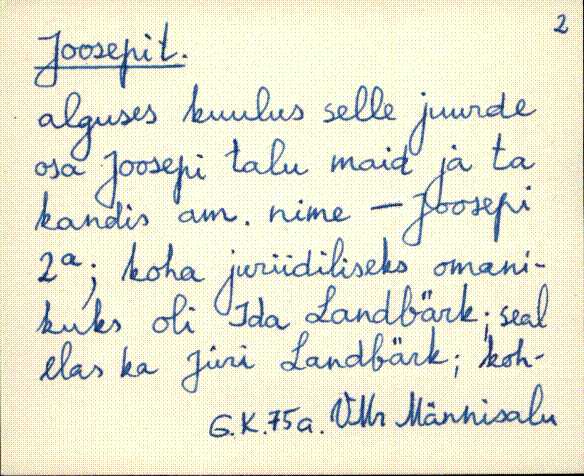 2
Joosepi t.
alguses kuulus selle juurde
osa Joosepi talu maid ja ta
kandis am. nime — Joosepi
2ª; koha juriidiliseks omani-
kuks oli Ida Landbärk; seal
elas ka Jüri Landbärk; koh-
G.K.75a. VMr Männisalu